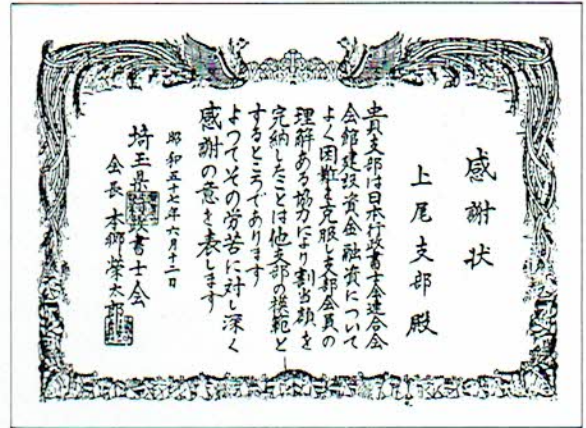 感謝状
上尾支部殿
貴支部は日本行政書士会連合会
会館建設資金融資について
よく困難を克服し支部会員の
理解ある協力により割当額を
完納したことは他支部の模範と
するところであります
よつてその労苦に対し深く
感謝の意を表します
昭和五十七年六月十二日
埼玉県行政書士会
会長 本郷榮太郎